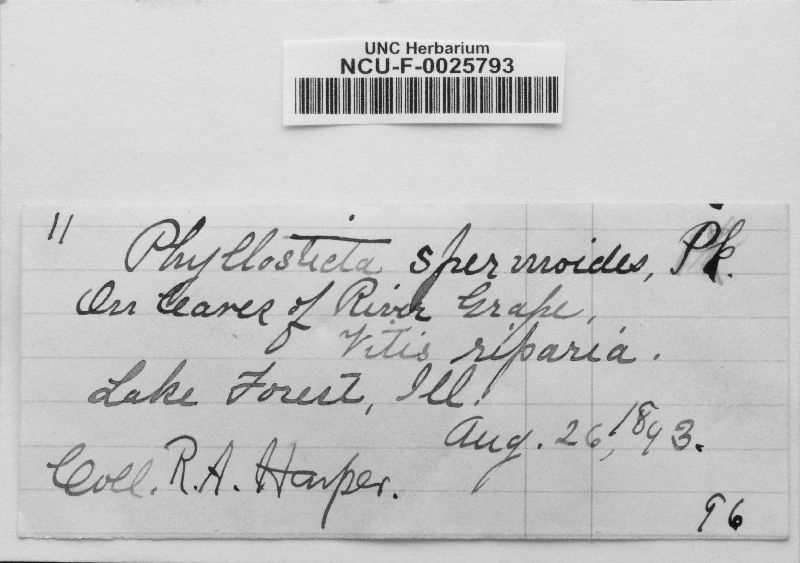 UNC Herbarium
NCU-F-0025793
11
Phyllosticta spermoides, Pk.
On leaves of River Grape,
Vitis riparia.
Lake Forest, Ill.
Aug. 26, 1893.
Coll. R.A. Harper.
96